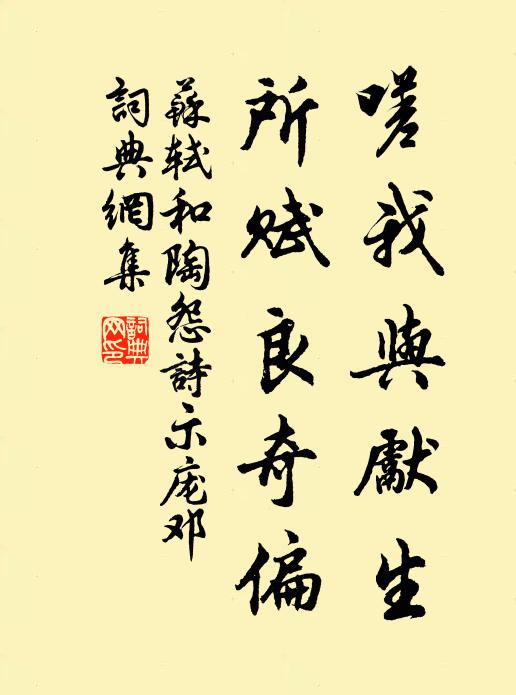 嗟我與獻生
所赋良奇偏
蘇軾和陶怨詩示庞邓
詞典網集
詞典網印